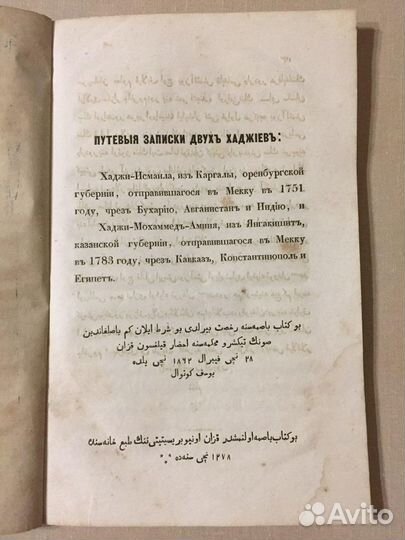 ПУТЕВЫЯ ЗАПИСКИ ДВУХЪ ХАДЖІЕВЪ:
Хаджи-Исмаила, изъ Каргалы, оренбургской
губерніи, отправившагося въ Мекку въ 1751
году, чрезъ Бухарію, Авганистанъ и Индію, и
Хаджи-Мохаммедъ-Аминя, изъ Янгакишитъ,
казанской губерніи, отправившагося въ Мекку
въ 1783 году, чрезъ Кавказъ, Константинополь и
Египетъ.
بو كتاب باصمه‌سنه رخصت بیرلدی بو شرط ایلان كم باصلغاندین
صونك تیكشرو محكمه‌سنه احضار قیلنسون قزان
٢٨ نچی فیبرال ١٨٦٢ نچی یلده
یوسف كوتوال
بو كتاب باصمه اولنمشدر قزان اونیویرسیتیتی ننك طبع خانه سنك
١٢٧٨ نچی سنه‌ده
Avito